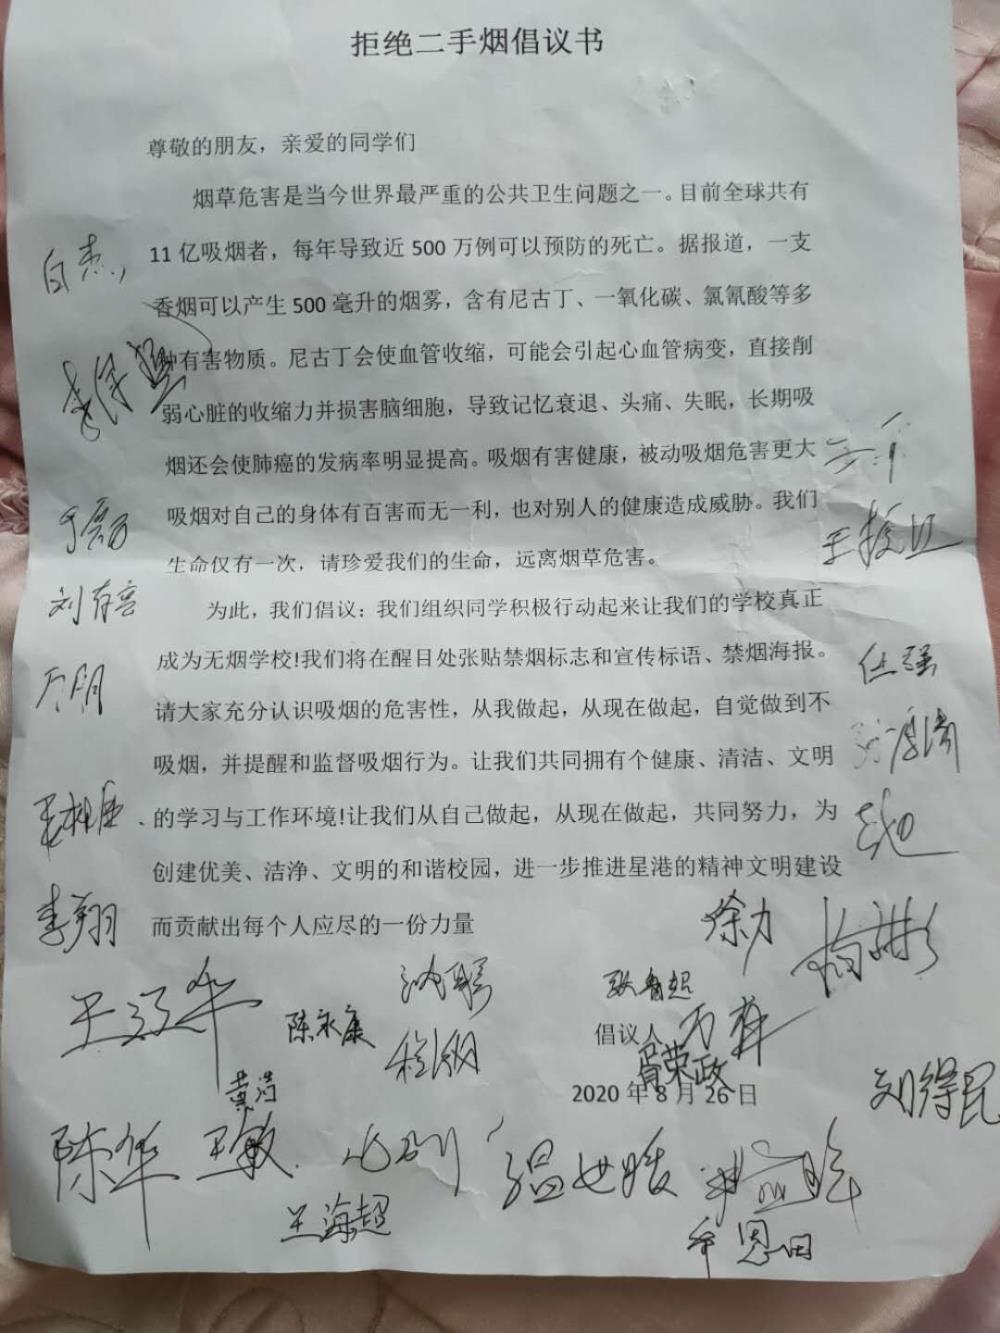 拒绝二手烟倡议书
尊敬的朋友，亲爱的同学们
烟草危害是当今世界最严重的公共卫生问题之一。目前全球共有
11 亿吸烟者，每年导致近 500 万例可以预防的死亡。据报道，一支
香烟可以产生 500 毫升的烟雾，含有尼古丁、一氧化碳、氯氰酸等多
种有害物质。尼古丁会使血管收缩，可能会引起心血管病变，直接削
弱心脏的收缩力并损害脑细胞，导致记忆衰退、头痛、失眠，长期吸
烟还会使肺癌的发病率明显提高。吸烟有害健康，被动吸烟危害更大
吸烟对自己的身体有百害而无一利，也对别人的健康造成威胁。我们
生命仅有一次，请珍爱我们的生命，远离烟草危害。
为此，我们倡议：我们组织同学积极行动起来让我们的学校真正
成为无烟学校!我们将在醒目处张贴禁烟标志和宣传标语、禁烟海报。
请大家充分认识吸烟的危害性，从我做起，从现在做起，自觉做到不
吸烟，并提醒和监督吸烟行为。让我们共同拥有个健康、清洁、文明
的学习与工作环境!让我们从自己做起，从现在做起，共同努力，为
创建优美、洁净、文明的和谐校园，进一步推进星港的精神文明建设
而贡献出每个人应尽的一份力量
倡议人
2020 年 8 月 26 日
白杰
于磊
万明
李翔
任强
徐力
陈永康
黄洁
胥荣政
刘得民
陈华
王敏
王海超
牟恩田